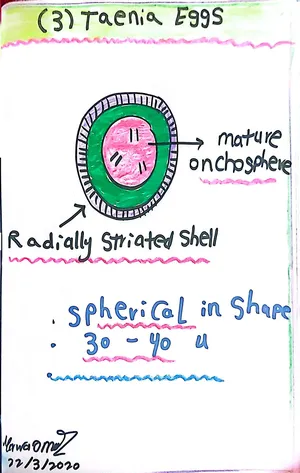 (3) Taenia Eggs
mature
onchosphere
Radially Striated Shell
. spherical in Shape
. 30 - 40 u
22/3/2020